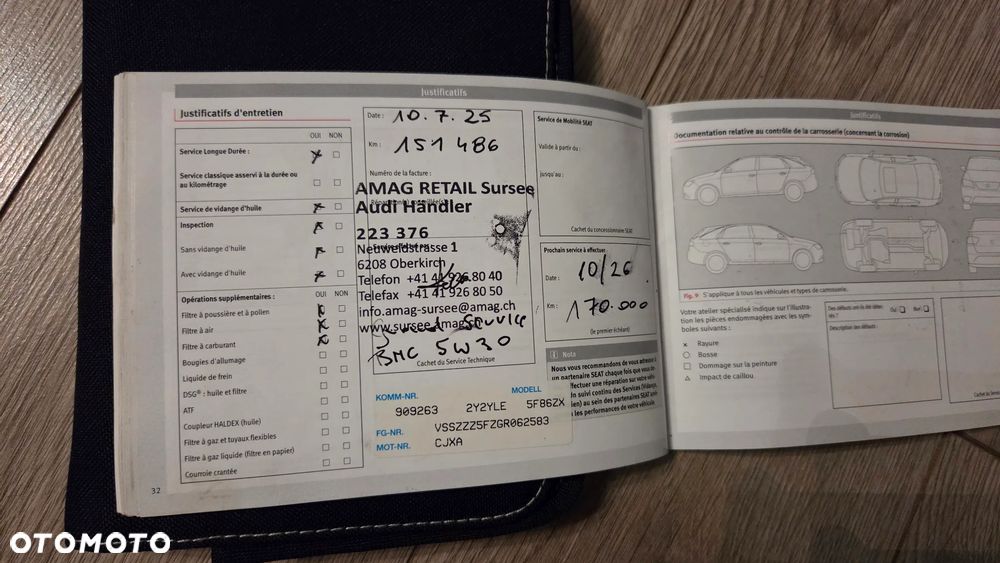 Justificatifs
Justificatifs d'entretien
OUI NON
Service Longue Durée :
Service classique asservi à la durée ou
au kilométrage
Service de vidange d'huile
Inspection
Sans vidange d'huile
Avec vidange d'huile
Opérations supplémentaires :
OUI NON
Filtre à poussière et à pollen
Filtre à air
Filtre à carburant
Bougies d'allumage
Liquide de frein
DSG® : huile et filtre
ATF
Coupleur HALDEX (huile)
Filtre à gaz et tuyaux flexibles
Filtre à gaz liquide (filtre en papier)
Courroie crantée
32
Date : 10.7.25
Km : 151 486
Numéro de la facture :
AMAG RETAIL Sursee
Audi Händler
223 376
Neuweidstrasse 1
6208 Oberkirch
Telefon +41 41 926 80 40
Telefax +41 41 926 80 50
info.amag-sursee@amag.ch
www.sursee.amag.ch
Service
BMC 5W30
Cachet du Service Technique
KOMM-NR. MODELL
909263 2Y2YLE 5F86ZX
FG-NR. VSSZZZ5FZGR062583
MOT-NR. CJXA
Service de Mobilité SEAT
Valide à partir du :
jusqu'au :
Cachet du concessionnaire SEAT
Prochain service à effectuer
Date : 10/26
Km : 170.000
(le premier échéant)
Nota
Nous vous recommandons de vous adresser à
un partenaire SEAT chaque fois que vous de
effectuer une réparation sur votre véhi
n suivi continu des Services (Vidange,
en) au sein des partenaires SEAT
les performances de votre véhicule.
Justificatifs
Documentation relative au contrôle de la carrosserie (concernant la corrosion)
Fig. 9 S'applique à tous les véhicules et types de carrosserie.
Votre atelier spécialisé indique sur l'illustra-
tion les pièces endommagées avec les sym-
boles suivants :
× Rayure
○ Bosse
□ Dommage sur la peinture
△ Impact de caillou.
Des défauts ont-ils été détec-
tés ? Oui Non
Description des défauts :
Cachet du Se
OTOMOTO